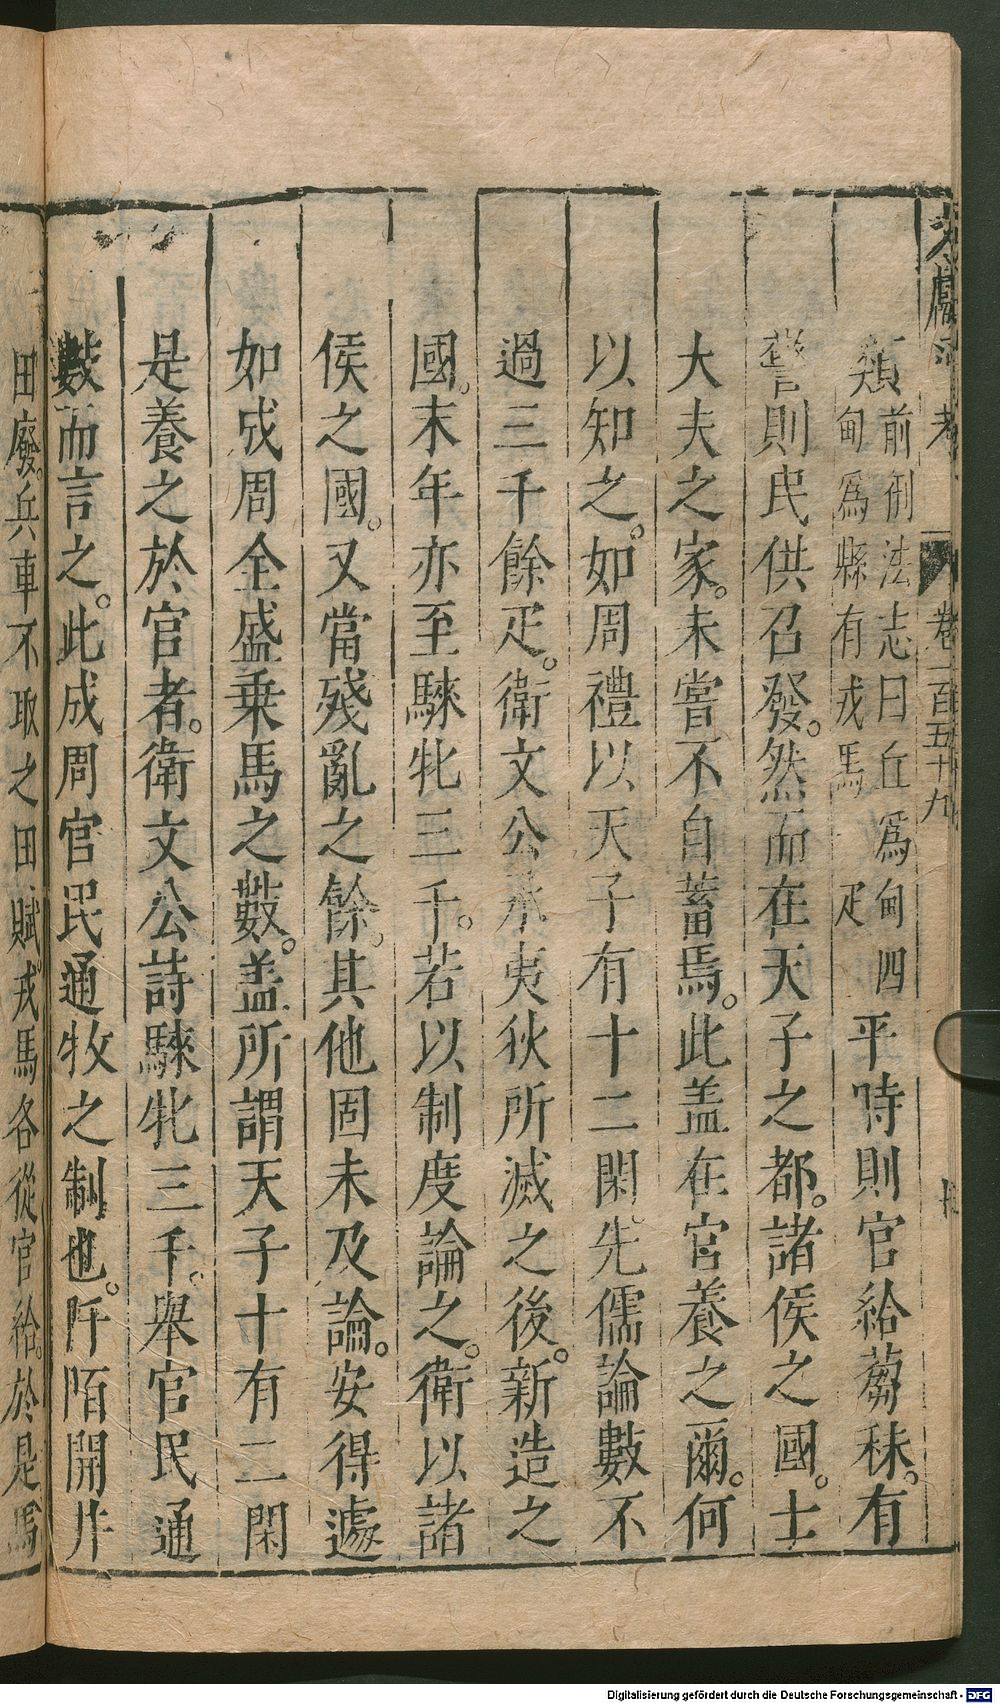 文獻通考 卷一百五十九
類前刑法志曰丘爲甸四甸爲縣有戎馬一疋平時則官給蒭秣。有
警則民供召發。然而在天子之都。諸侯之國。士
大夫之家。未嘗不自蓄馬。此盖在官養之爾。何
以知之。如周禮以天子有十二閑。先儒論數不
過三千餘疋。衛文公承夷狄所滅之後。新造之
國。末年亦至騋牝三千。若以制度論之。衛以諸
侯之國。又當殘亂之餘。其他固未及論。安得遽
如成周全盛乗馬之數。盖所謂天子十有二閑
是養之於官者。衛文公詩騋牝三千。舉官民通
數而言之。此成周官民通牧之制也。阡陌開井
田廢。兵車不取之田賦。戎馬各從官給。於是馬
Digitalisierung gefördert durch die Deutsche Forschungsgemeinschaft - DFG